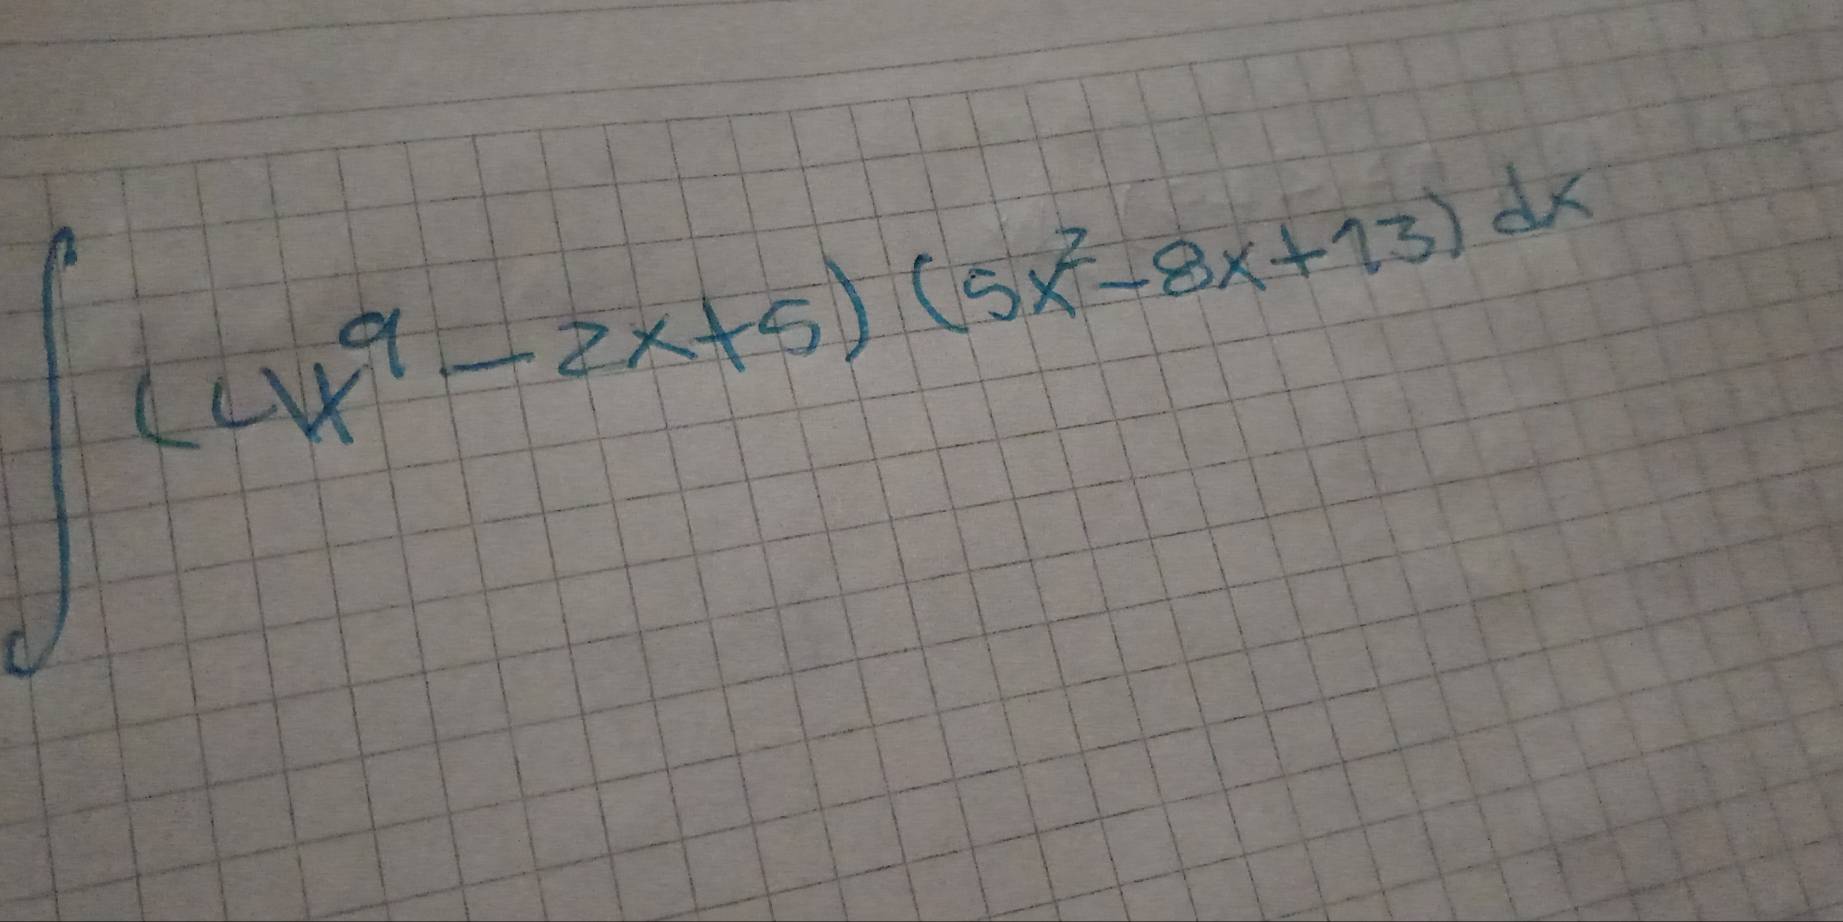 ∫ (4x⁹ - 2x + 5) (5x² - 8x + 13) dx